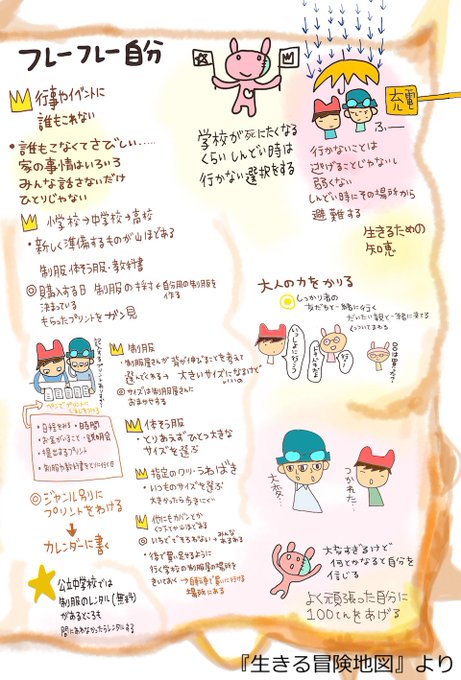 フレーフレー自分
行事やイベントに
誰もこれない
・誰もこなくてさびしい……
家の事情はいろいろ
みんな話さないだけ
ひとりじゃない
学校が死にたくなる
くらいしんどい時は
行かない選択をする
充電
ふー
行かないことは
逃げることじゃないし
弱くない
しんどい時にその場所から
避難する
生きるための
知恵
小学校→中学校→高校
・新しく準備するものが山ほどある
制服・体そう服・教科書
◎購入する日
決まっている
もらったプリントをガン見
制服の手続き
自分用の制服を
作る
記入するプリントあります?
ペンでプリントに
しるしをつける
・日程をみる・時間
・お金がいること・説明会
・提出するプリント
・制服や教科書をとりに行く日
◎ジャンル別に
プリントをわける
カレンダーに書く
公立中学校では
制服のレンタル(無料)
があるところも
間にあわなかったらレンタルする
制服
・制服屋さんが背が伸びることを考えて
選んでくれる→大きいサイズになるけど
いいの
◎サイズは制服屋さんに
おまかせする
体そう服
・とりあえずひとつ大きな
サイズを選ぶ
指定のクツ・うわばき
・いつものサイズを選ぶ
大きかったら歩きにくい
他にもカバンとか
くつ下とか山ほどある
◎いちどでそろわない→みんな
あるある
・後で買い足せるように
行く学校の制服屋の場所を
きいておく→自転車で買いに行ける
場所にある
大人の力をかりる
しっかり者の
友だちと一緒に行く
だいたい親と一緒に来てる
ついてまわる
いっしょに行こう
行こう
○○は買った?
大変…
つかれた…
大変すぎるけど
何とかなると自分を
信じる
よく頑張った自分に
100てんをあげる
『生きる冒険地図』より